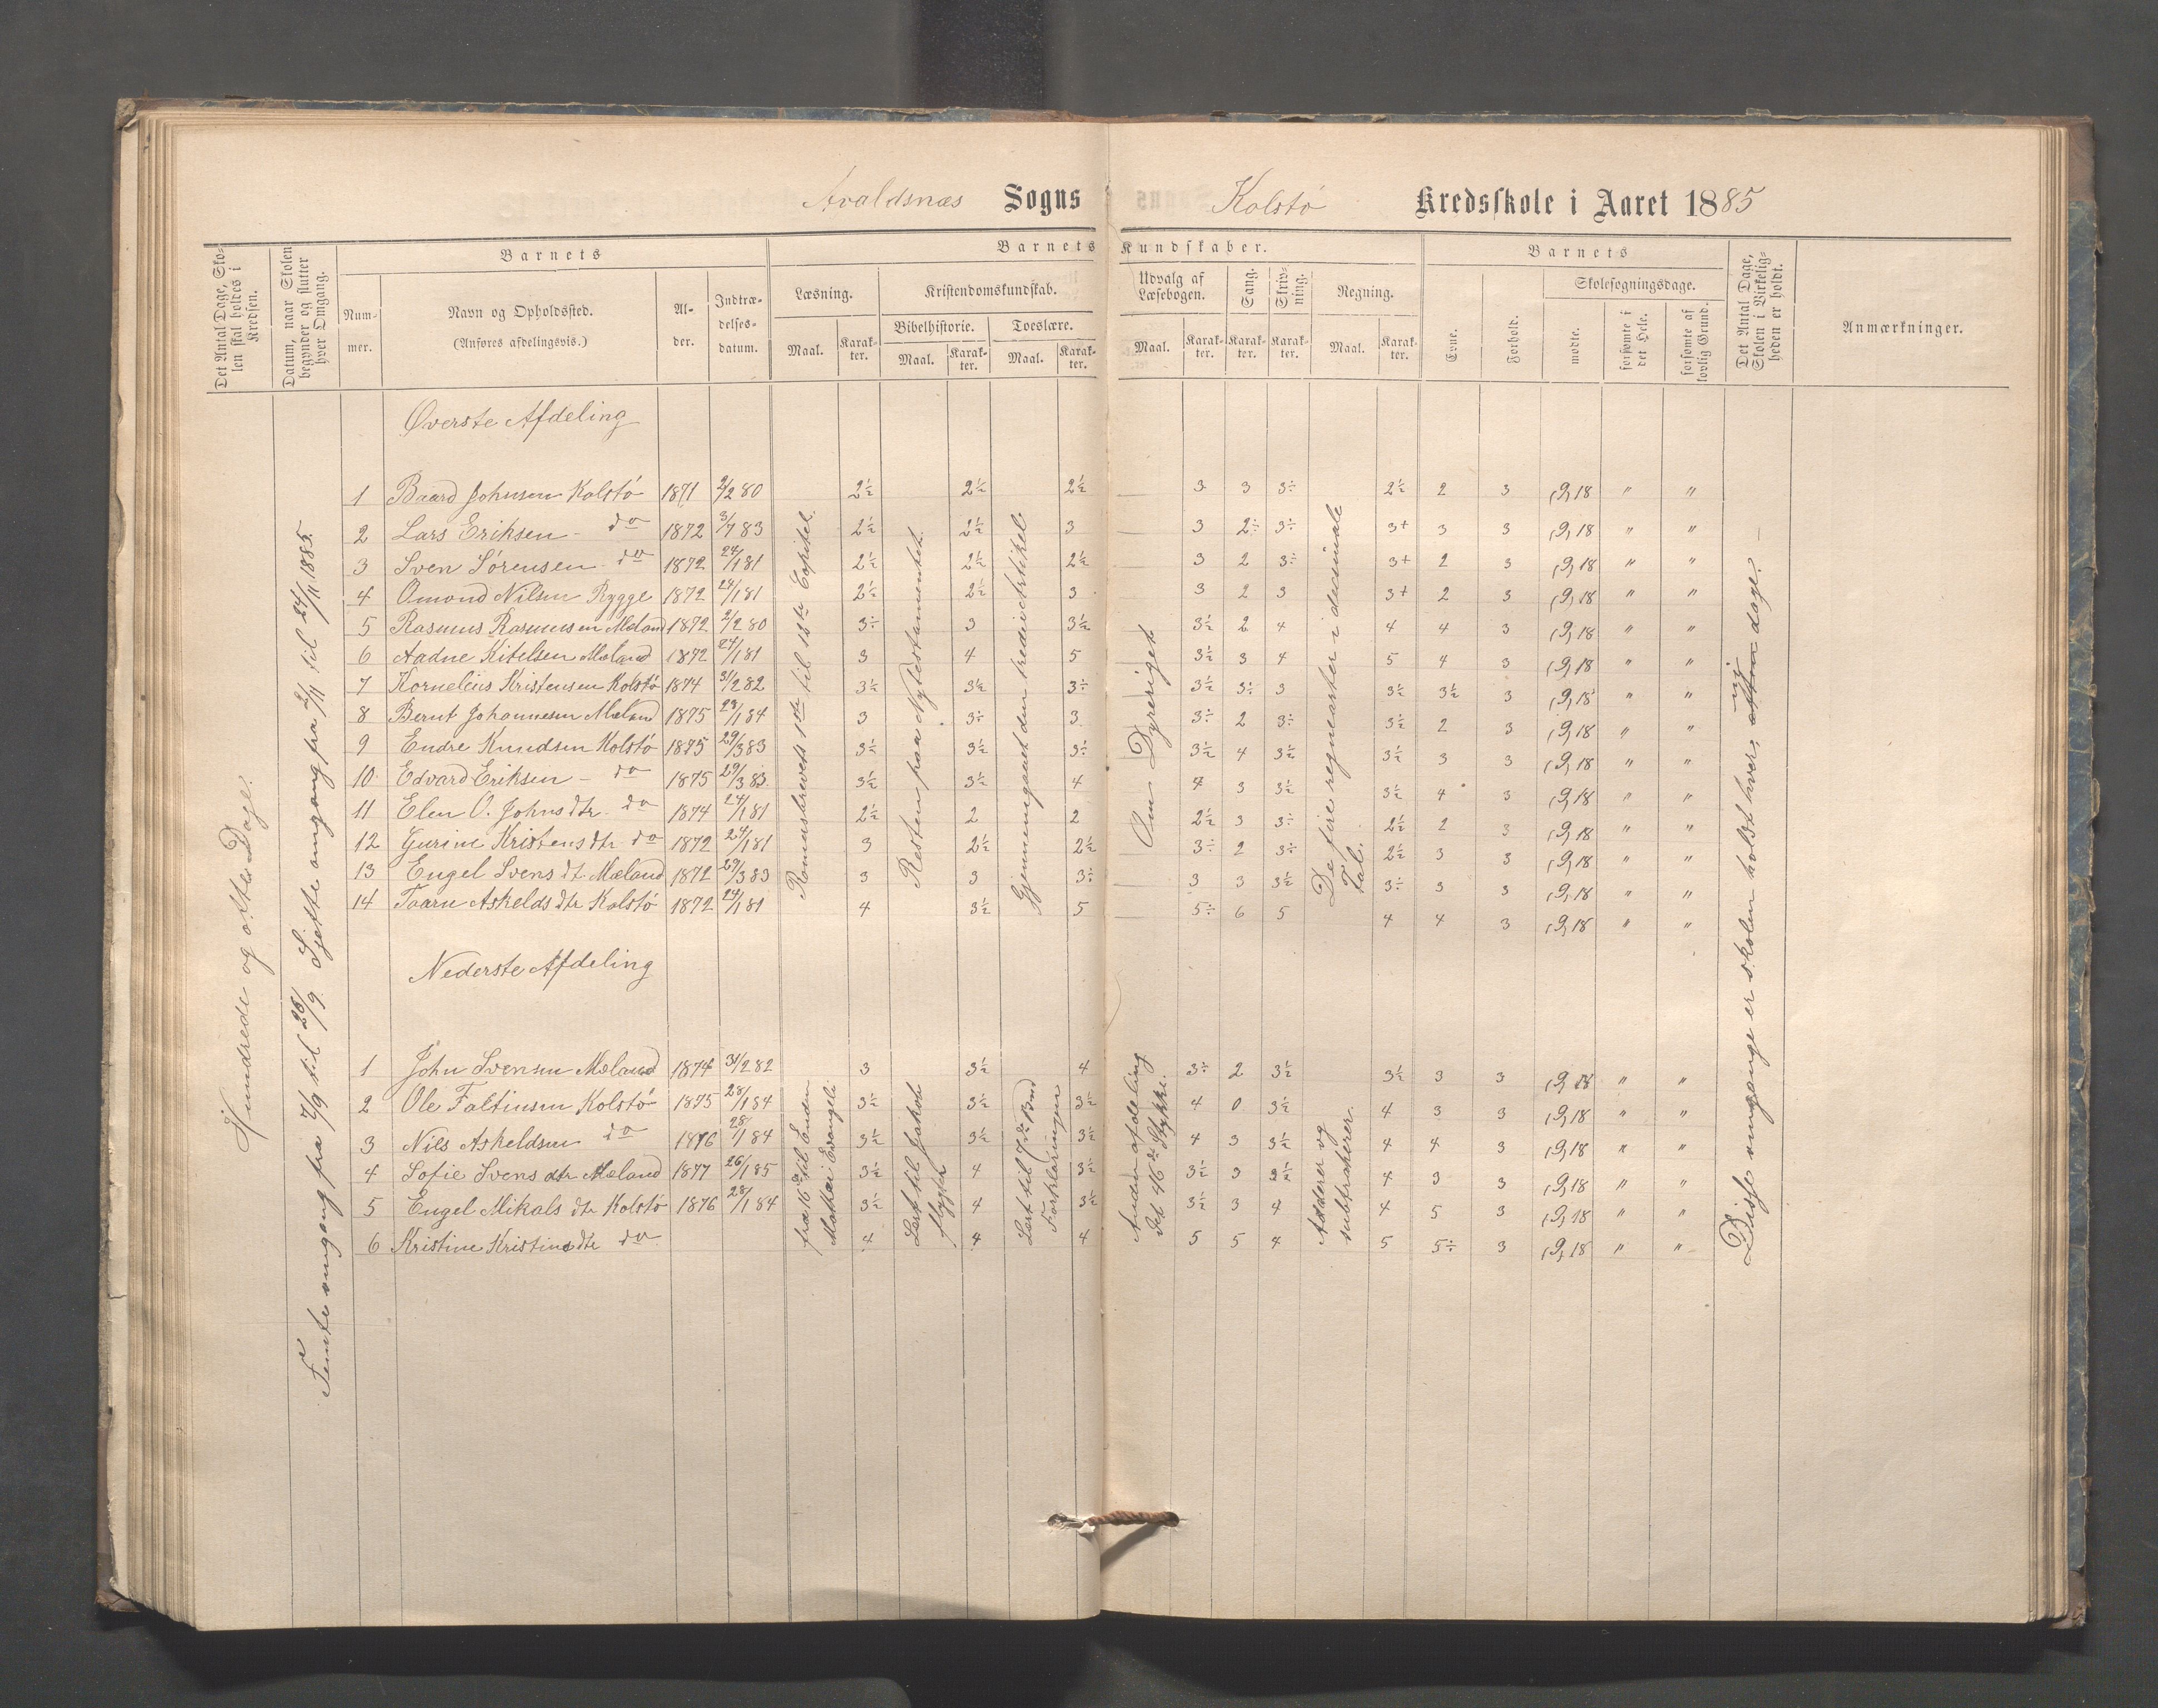 Avaldsnæs Sogns Kolstø Kredsskole i Aaret 1885
Det Antal Dage, Skolen skal holdes i Kredsen.
Datum, naar Skolen begynder og slutter hver Omgang.
Barnets
Nummer.
Navn og Opholdssted.
(Anføres afdelingsvis.)
Alder.
Indtrædelsesdatum.
Barnets Kundskaber.
Læsning.
Maal. Karakter.
Kristendomskundskab.
Bibelhistorie. Troeslære.
Maal. Karakter. Maal. Karakter.
Udvalg af Læsebogen.
Maal. Karakter.
Sang. Karakter.
Skrivning. Karakter.
Regning.
Maal. Karakter.
Barnets
Evne. Forhold.
Skolesøgningsdage.
mødte. forsømte i det Hele. forsømte af lovlig Grund.
Det Antal Dage, Skolen i Virkeligheden er holdt.
Anmærkninger.
Hundrede og otte Dage.
Femte omgang fra 7/9 til 26/9. Sjette omgang fra 2/11 til 24/11 1885.
Øverste Afdeling
1 Baard Johnsen Kolstø 1871 2/2 80 2½ 2½ 2½ 3 3 3÷ 2½ 2 3 (9,18 " "
2 Lars Eriksen - do 1872 3/7 83 2½ 2½ 3 3 2÷ 3÷ 3+ 3 3 (9,18 " "
3 Sven Sørensen do 1872 24/1 81 2½ 2½ 2½ 3 2 3÷ 3+ 2 3 (9,18 " "
4 Omond Nilsen Rygge 1872 24/1 81 2½ 2½ 3 3 2 3 3+ 2 3 (9,18 " "
5 Rasmus Rasmussen Mæland 1872 2/2 80 3÷ 3 3½ 3½ 2 4 4 4 3 (9,18 " "
6 Aadne Kitelsen Mæland 1872 24/1 81 3 4 5 3½ 3 4 5 4 3 (9,18 " "
7 Kornelius Kristensen Kolstø 1874 31/2 82 3½ 3½ 3÷ 3½ 3÷ 3 3½ 3½ 3 (9,18 " "
8 Bernt Johannesen Mæland 1875 28/1 84 3 3÷ 3 3÷ 2 3÷ 3½ 2 3 (9,18 " "
9 Endre Knudsen Kolstø 1875 29/3 83 3½ 3½ 3÷ 3½ 4 3½ 3½ 3 3 (9,18 " "
10 Edvard Eriksen - do 1875 29/3 83 3½ 3½ 4 4 3 3½ 3½ 4 3 (9,18 " "
11 Elen O. Johnsdtr. do 1874 24/1 81 2½ 2 2 2½ 3 3÷ 2½ 2 3 (9,18 " "
12 Gurine Kristensdtr do 1872 24/1 81 3 2½ 2½ 3÷ 2 3÷ 2½ 3 3 (9,18 " "
13 Engel Svensdt. Mæland 1872 29/3 83 3 3 3÷ 3 3 3½ 3÷ 3 3 (9,18 " "
14 Taarn Askeldsdtr Kolstø 1872 24/1 81 4 3½ 5 5÷ 6 5 4 4 3 (9,18 " "
Romerbrevets 1ste til 12te Capitel.
Resten paa Nytestamentet.
Gjennemgaaet den tredie Artikel
Om Dyreriget
De fire regnearter i decimale Tal.
Disse omgange er skolen holdt hver, ni dage.
Nederste Afdeling
1 John Svensen Mæland 1874 31/2 82 3 3½ 4 3÷ 2 3½ 3½ 3 3 (9,18 " "
2 Ole Faltinsen Kolstø 1875 28/1 84 3½ 3½ 3½ 4 0 3½ 4 3 3 (9,18 " "
3 Nils Askeldsen do 1876 28/1 84 3½ 3½ 3½ 4 3 3½ 4 4 3 (9,18 " "
4 Sofie Svensdtr Mæland 1877 26/1 85 3½ 4 3½ 3½ 3 3½ 4 3 3 (9,18 " "
5 Engel Mikalsdtr Kolstø 1876 28/1 84 3½ 4 3½ 3½ 3 4 4 5 3 (9,18 " "
6 Kristine Kristinsdtr do 4 4 4 5 5 4 5 5÷ 3 (9,18 " "
fra 16de til Enden Mathæi Evangeli
Lest til Jakob flygter
Lest til 7de Bud Forklaringen
Anden afdeling det 46de Stykke.
Adderer og subtraherer.